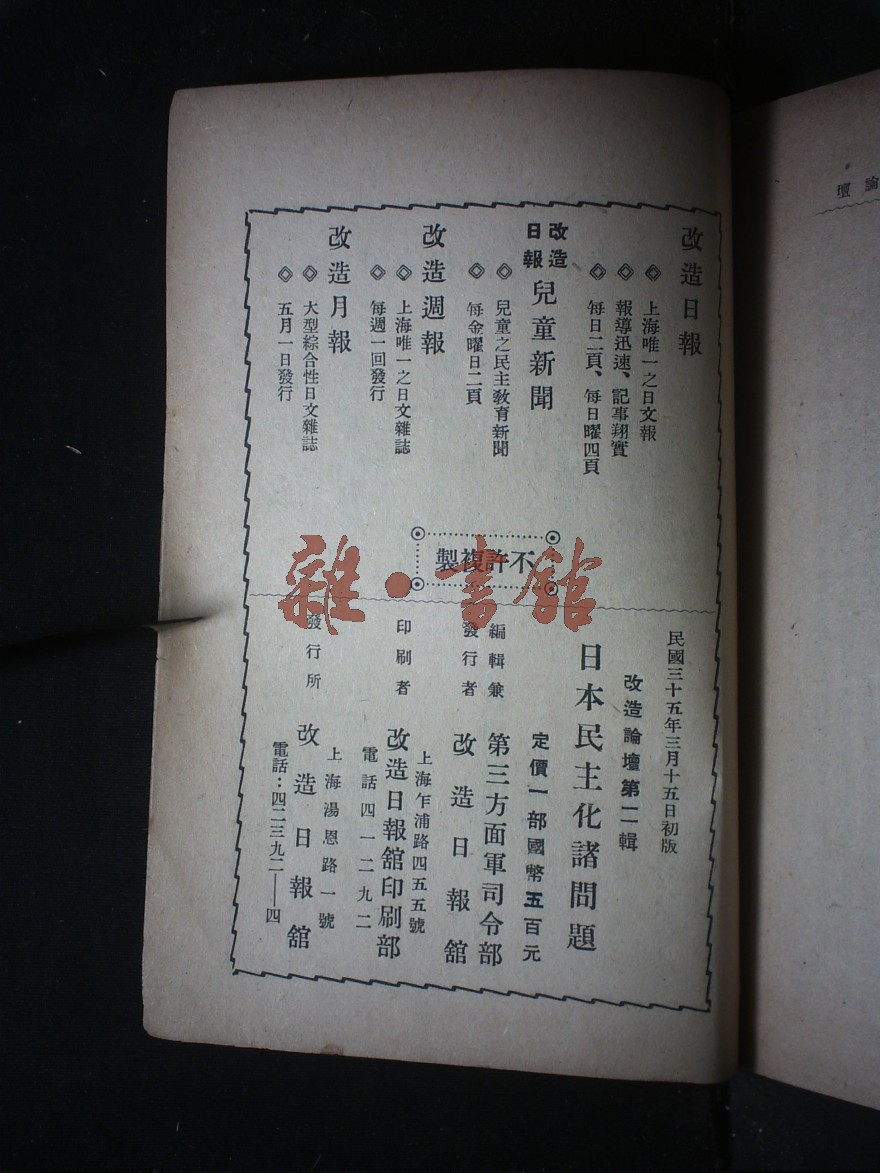 改造日報
◇上海唯一之日文報
◇報導迅速、記事翔實
◇每日二頁、每日曜四頁
改造日報 兒童新聞
◇兒童之民主教育新聞
◇每金曜日二頁
改造週報
◇上海唯一之日文雜誌
◇每週一回發行
改造月報
◇大型綜合性日文雜誌
◇五月一日發行
不許複製
民國三十五年三月十五日初版
改造論壇第二輯
日本民主化諸問題
定價一部國幣五百元
編輯兼發行者
第三方面軍司令部
改造日報館
上海乍浦路四五五號
印刷者
改造日報館印刷部
電話四一二九二
上海湯恩路一號
發行所
改造日報館
電話：四二三九二──四
論壇
雜·書館